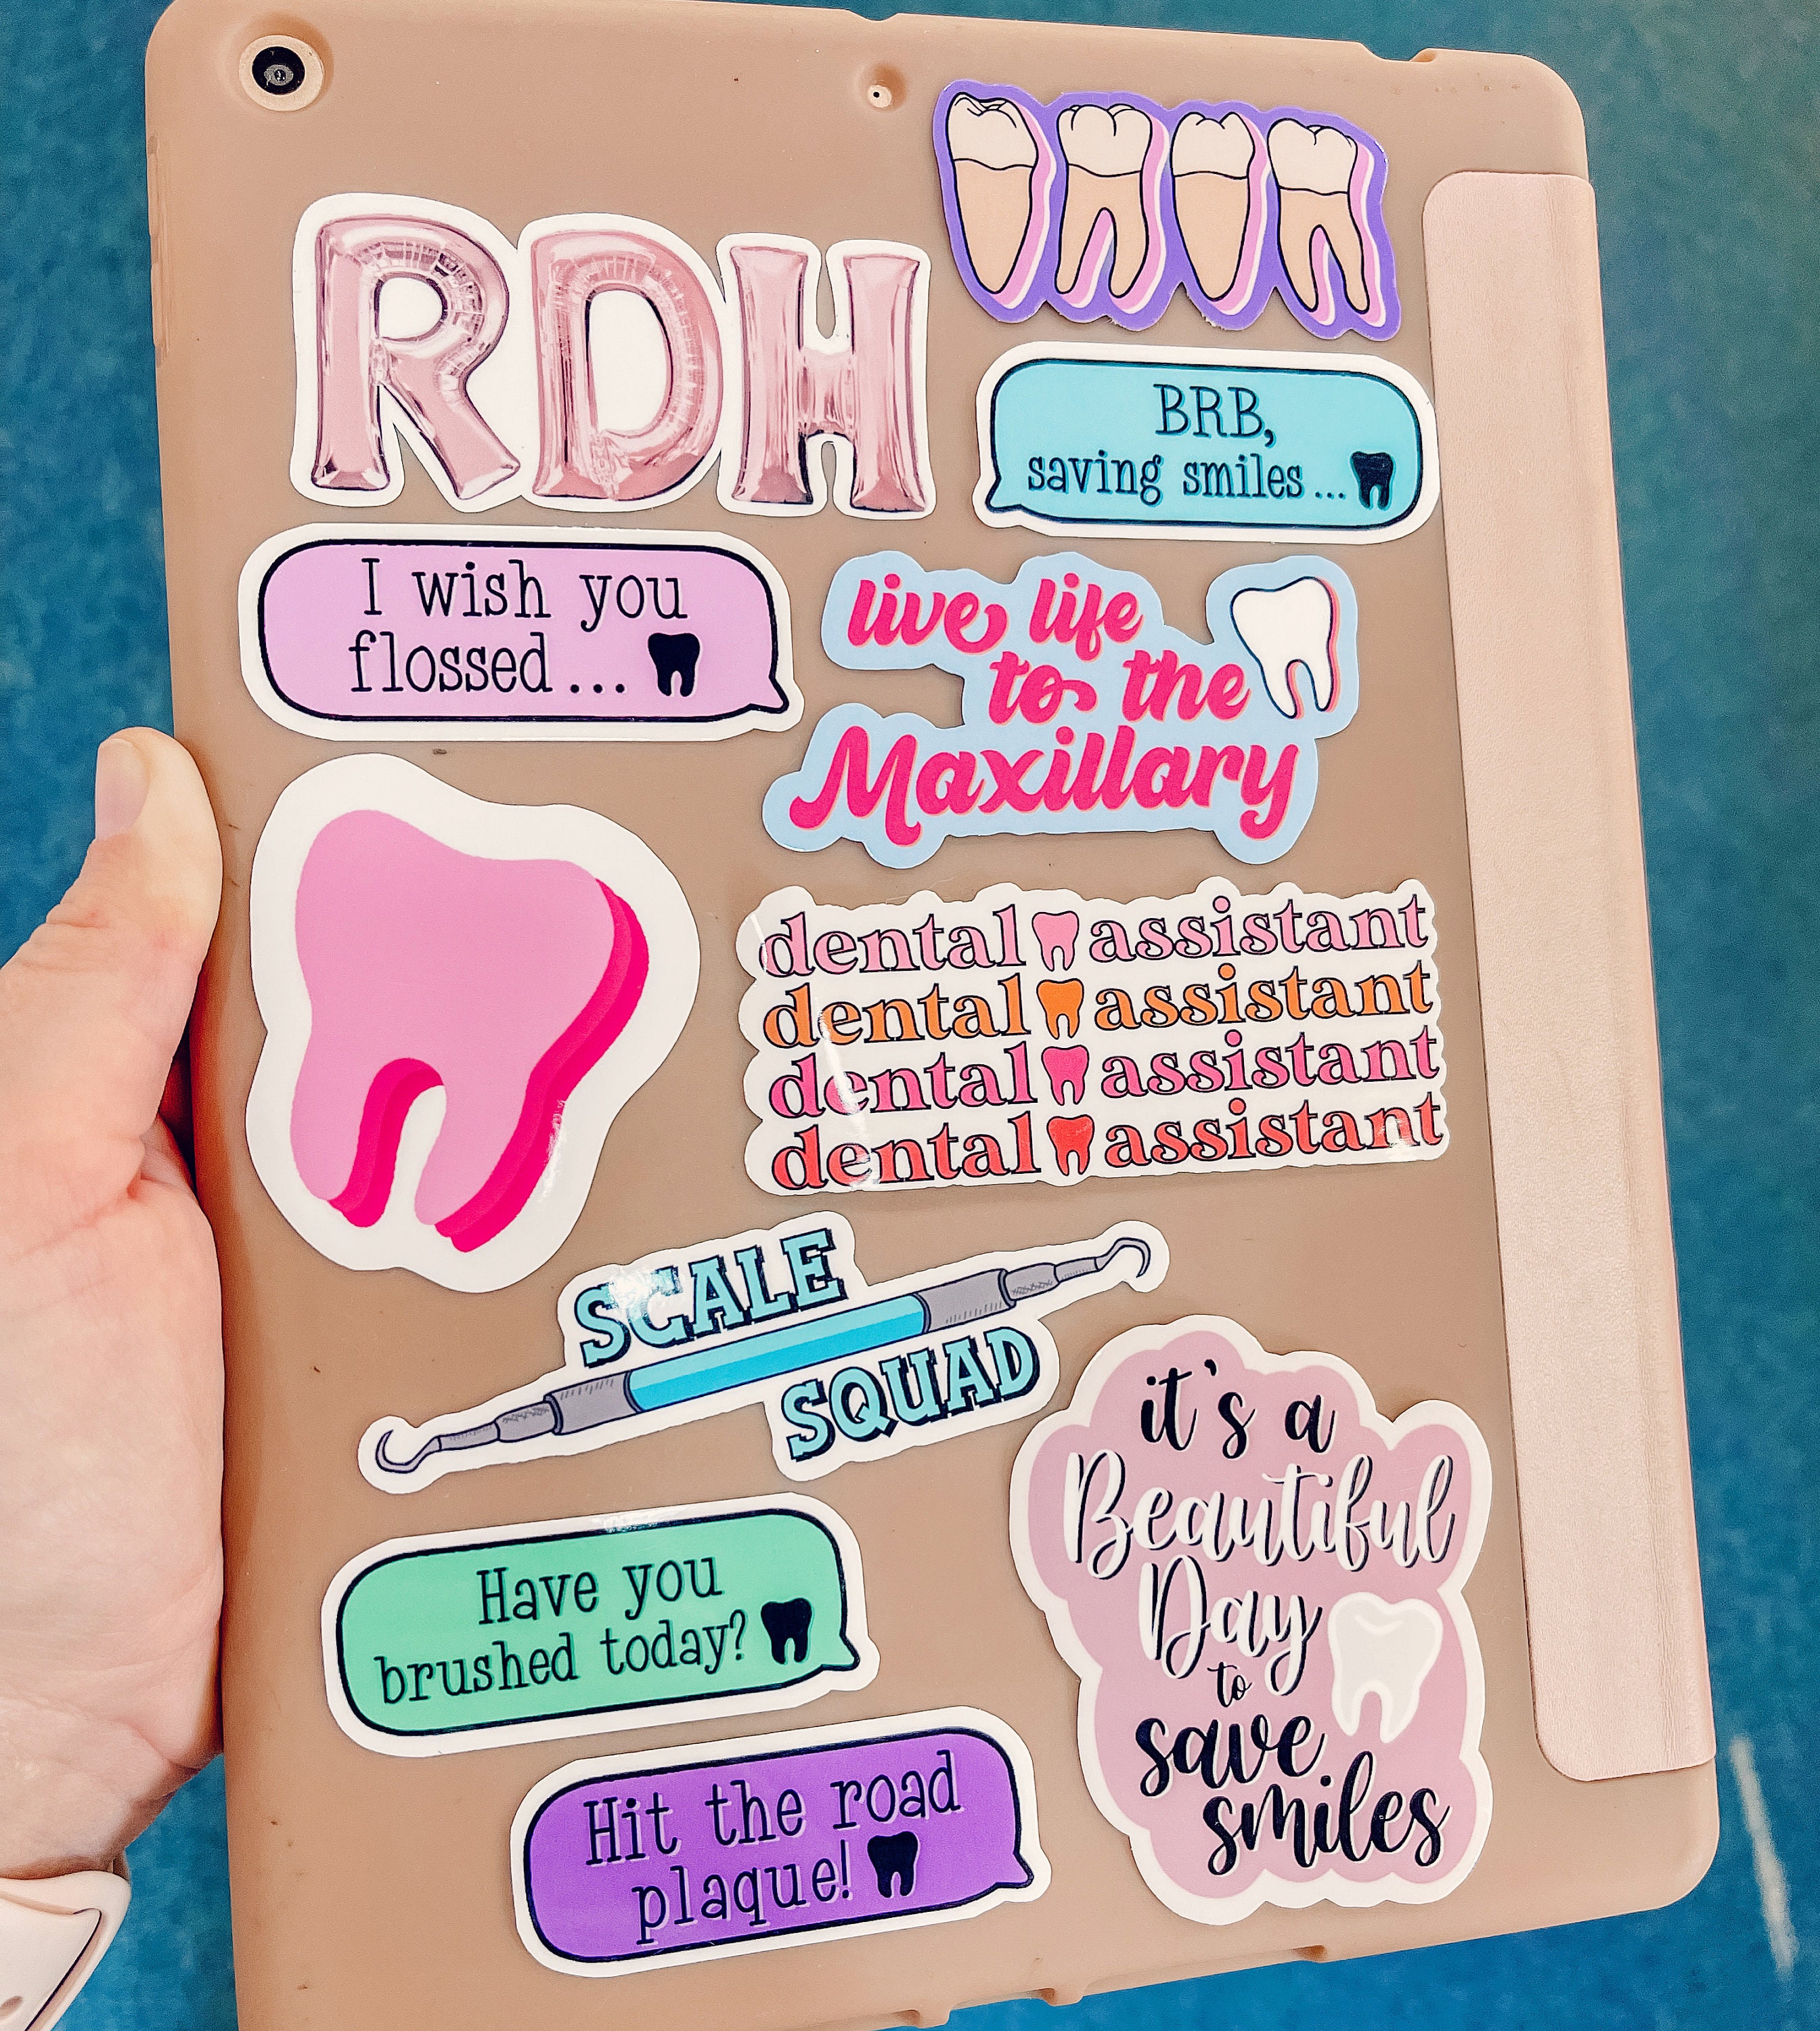 RDH
BRB,
saving smiles...
I wish you
flossed...
live life
to the
Maxillary
dental assistant
dental assistant
dental assistant
dental assistant
SCALE
SQUAD
it's a
Beautiful
Day
to
save
smiles
Have you
brushed today?
Hit the road
plaque!